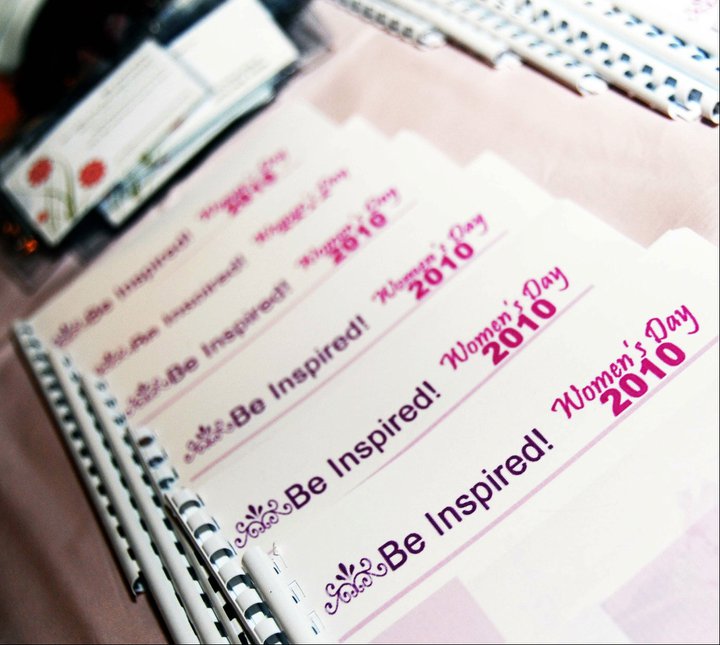 Women's Day
2010
Be Inspired!
Women's Day
2010
Be Inspired!
Women's Day
2010
Be Inspired!
Women's Day
2010
Be Inspired!
Women's Day
Be Inspired!
Women's Day
2010
Be Inspired!